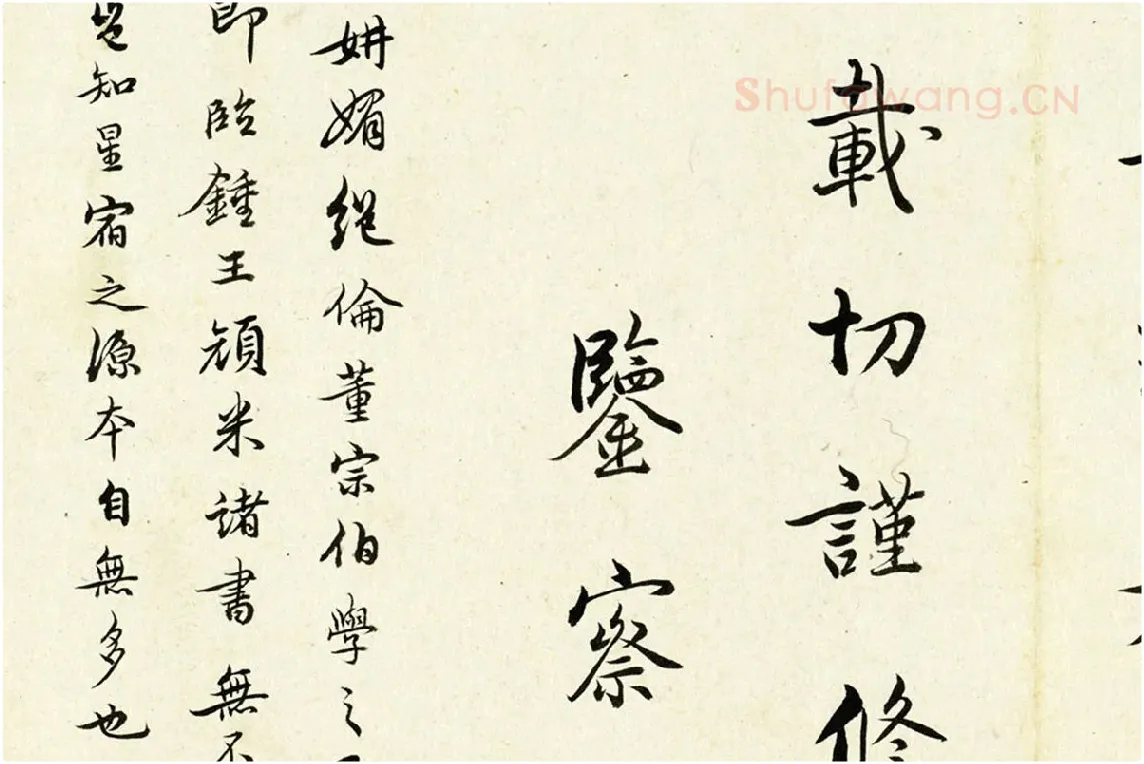 載切謹修
鑒察
妍媚絕倫董宗伯學之
即臨鍾王顔米諸書無不
豈知星宿之源本自無多也
Shufawang.CN